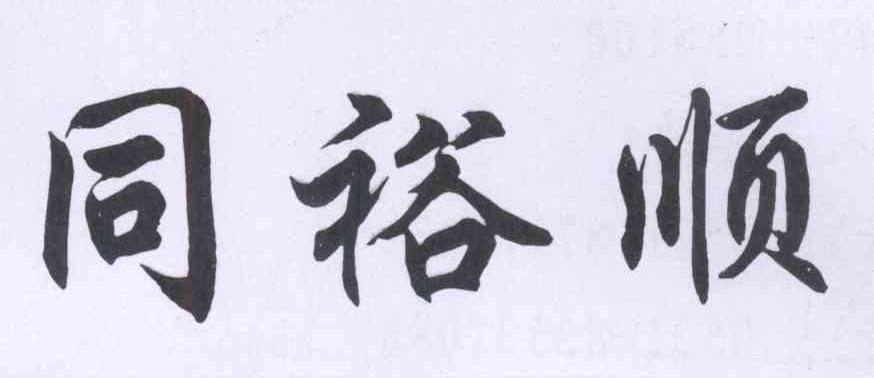 同裕顺